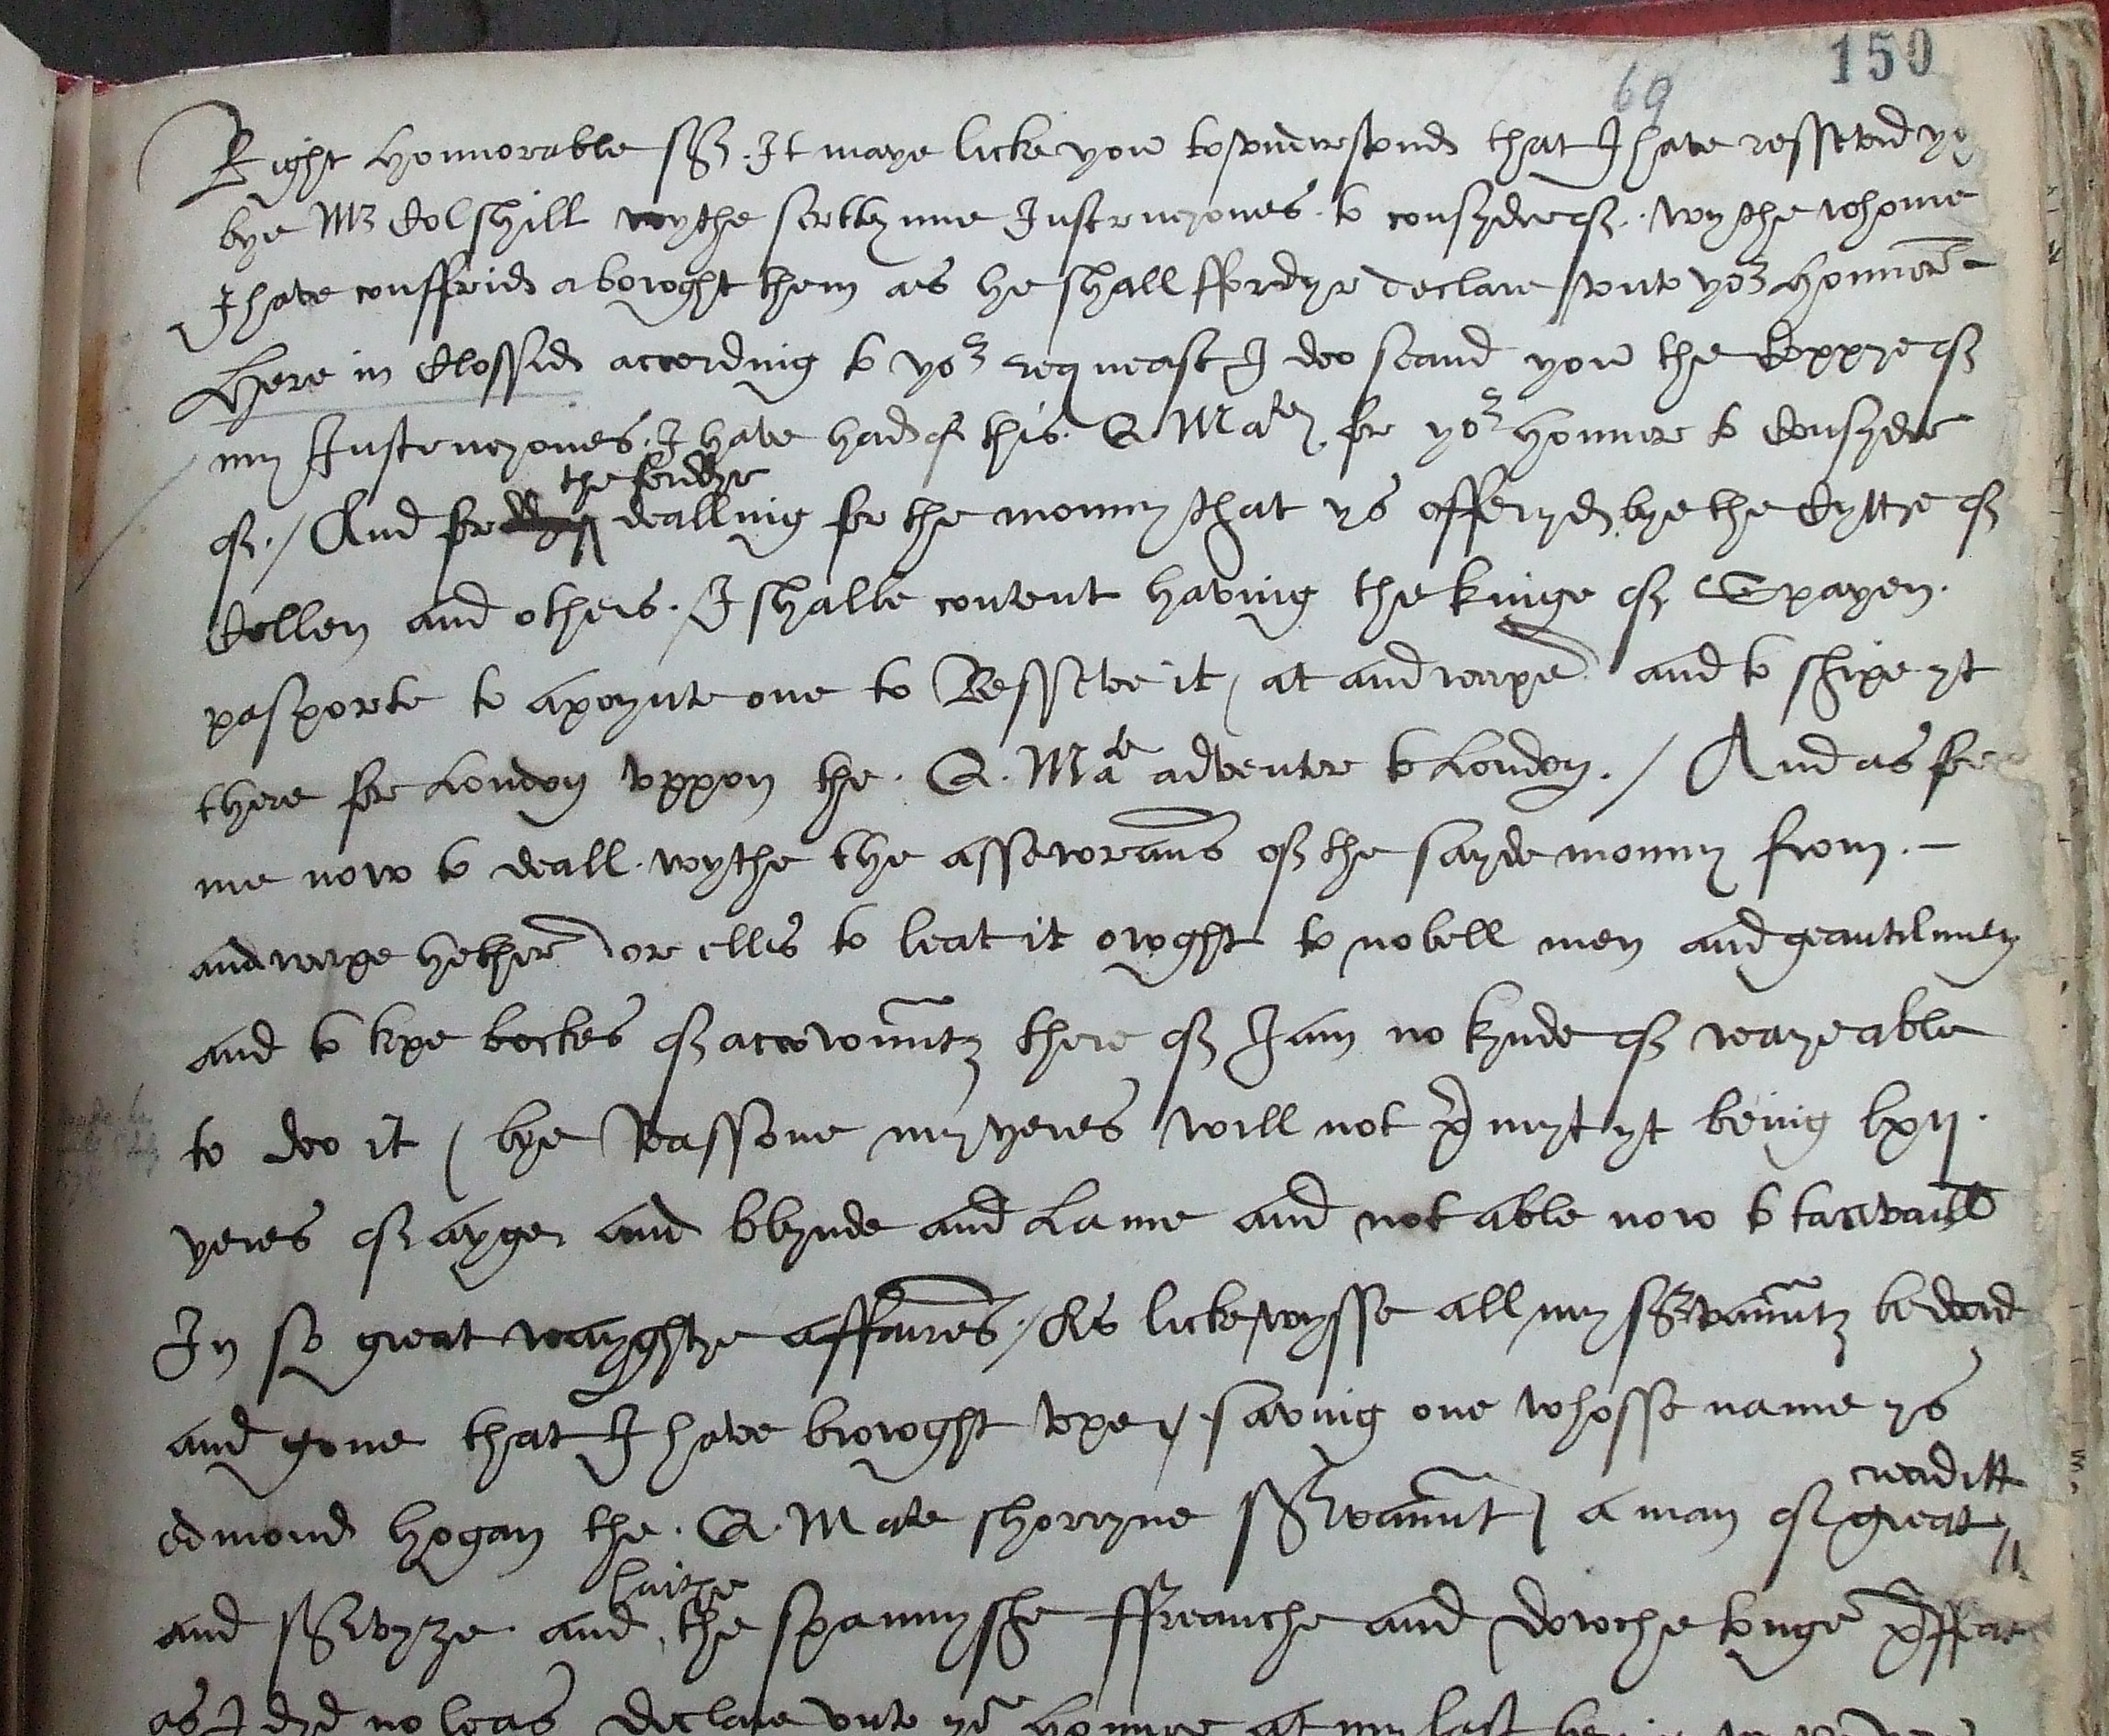 150
69
Right Honnorable sir. It maye licke you to vnderstond that I have resseved yo
bye Mr Colshill wythe sertteynne Instrucyones to consyder of. wythe whome
I have confferid abowght them as he shall ffordyr declare vnto yor Honner
Here in Clossid according to yor requeast I doo seand you the Coppye of
my Instrucyones I have had of this Q Matey for yor Honner to Consyder
the fordyr
of. / And for dealling for the monny that ys offeryd bye the Cytte of
Collen and others. I shalbe content having the kinge of Spayen.
pasporte to apoynte one to Resseve it / at andwarpe and to shipe yt
there for London vppon the. Q. Mate adventer to London. / And as for
me now to deall wythe the assewrans of the sayde monny from. –
andwarpe hether or ells to leat it owght to nobell men and geantilmen
and to kepe bockes of accowmtz there of I am no kynde of waye able
to doo it ( bye Reassone my yeres will not permyt yt being lxij.
yeres of ayge and blynde and Lame and not able now to travaill
In so great wayghtye affaires / As lickewysse all my servauntz be dead
and gone that I have browght vpe / saving one whosse name ys
creaditt
edmond Hogan the. Q. Mate sworne servaunt / a man of great
haithe
and servyze and the spannyshe ffreanche and dowche tonge perffaict
as I dyd no leas declare vnto yor honner at my last